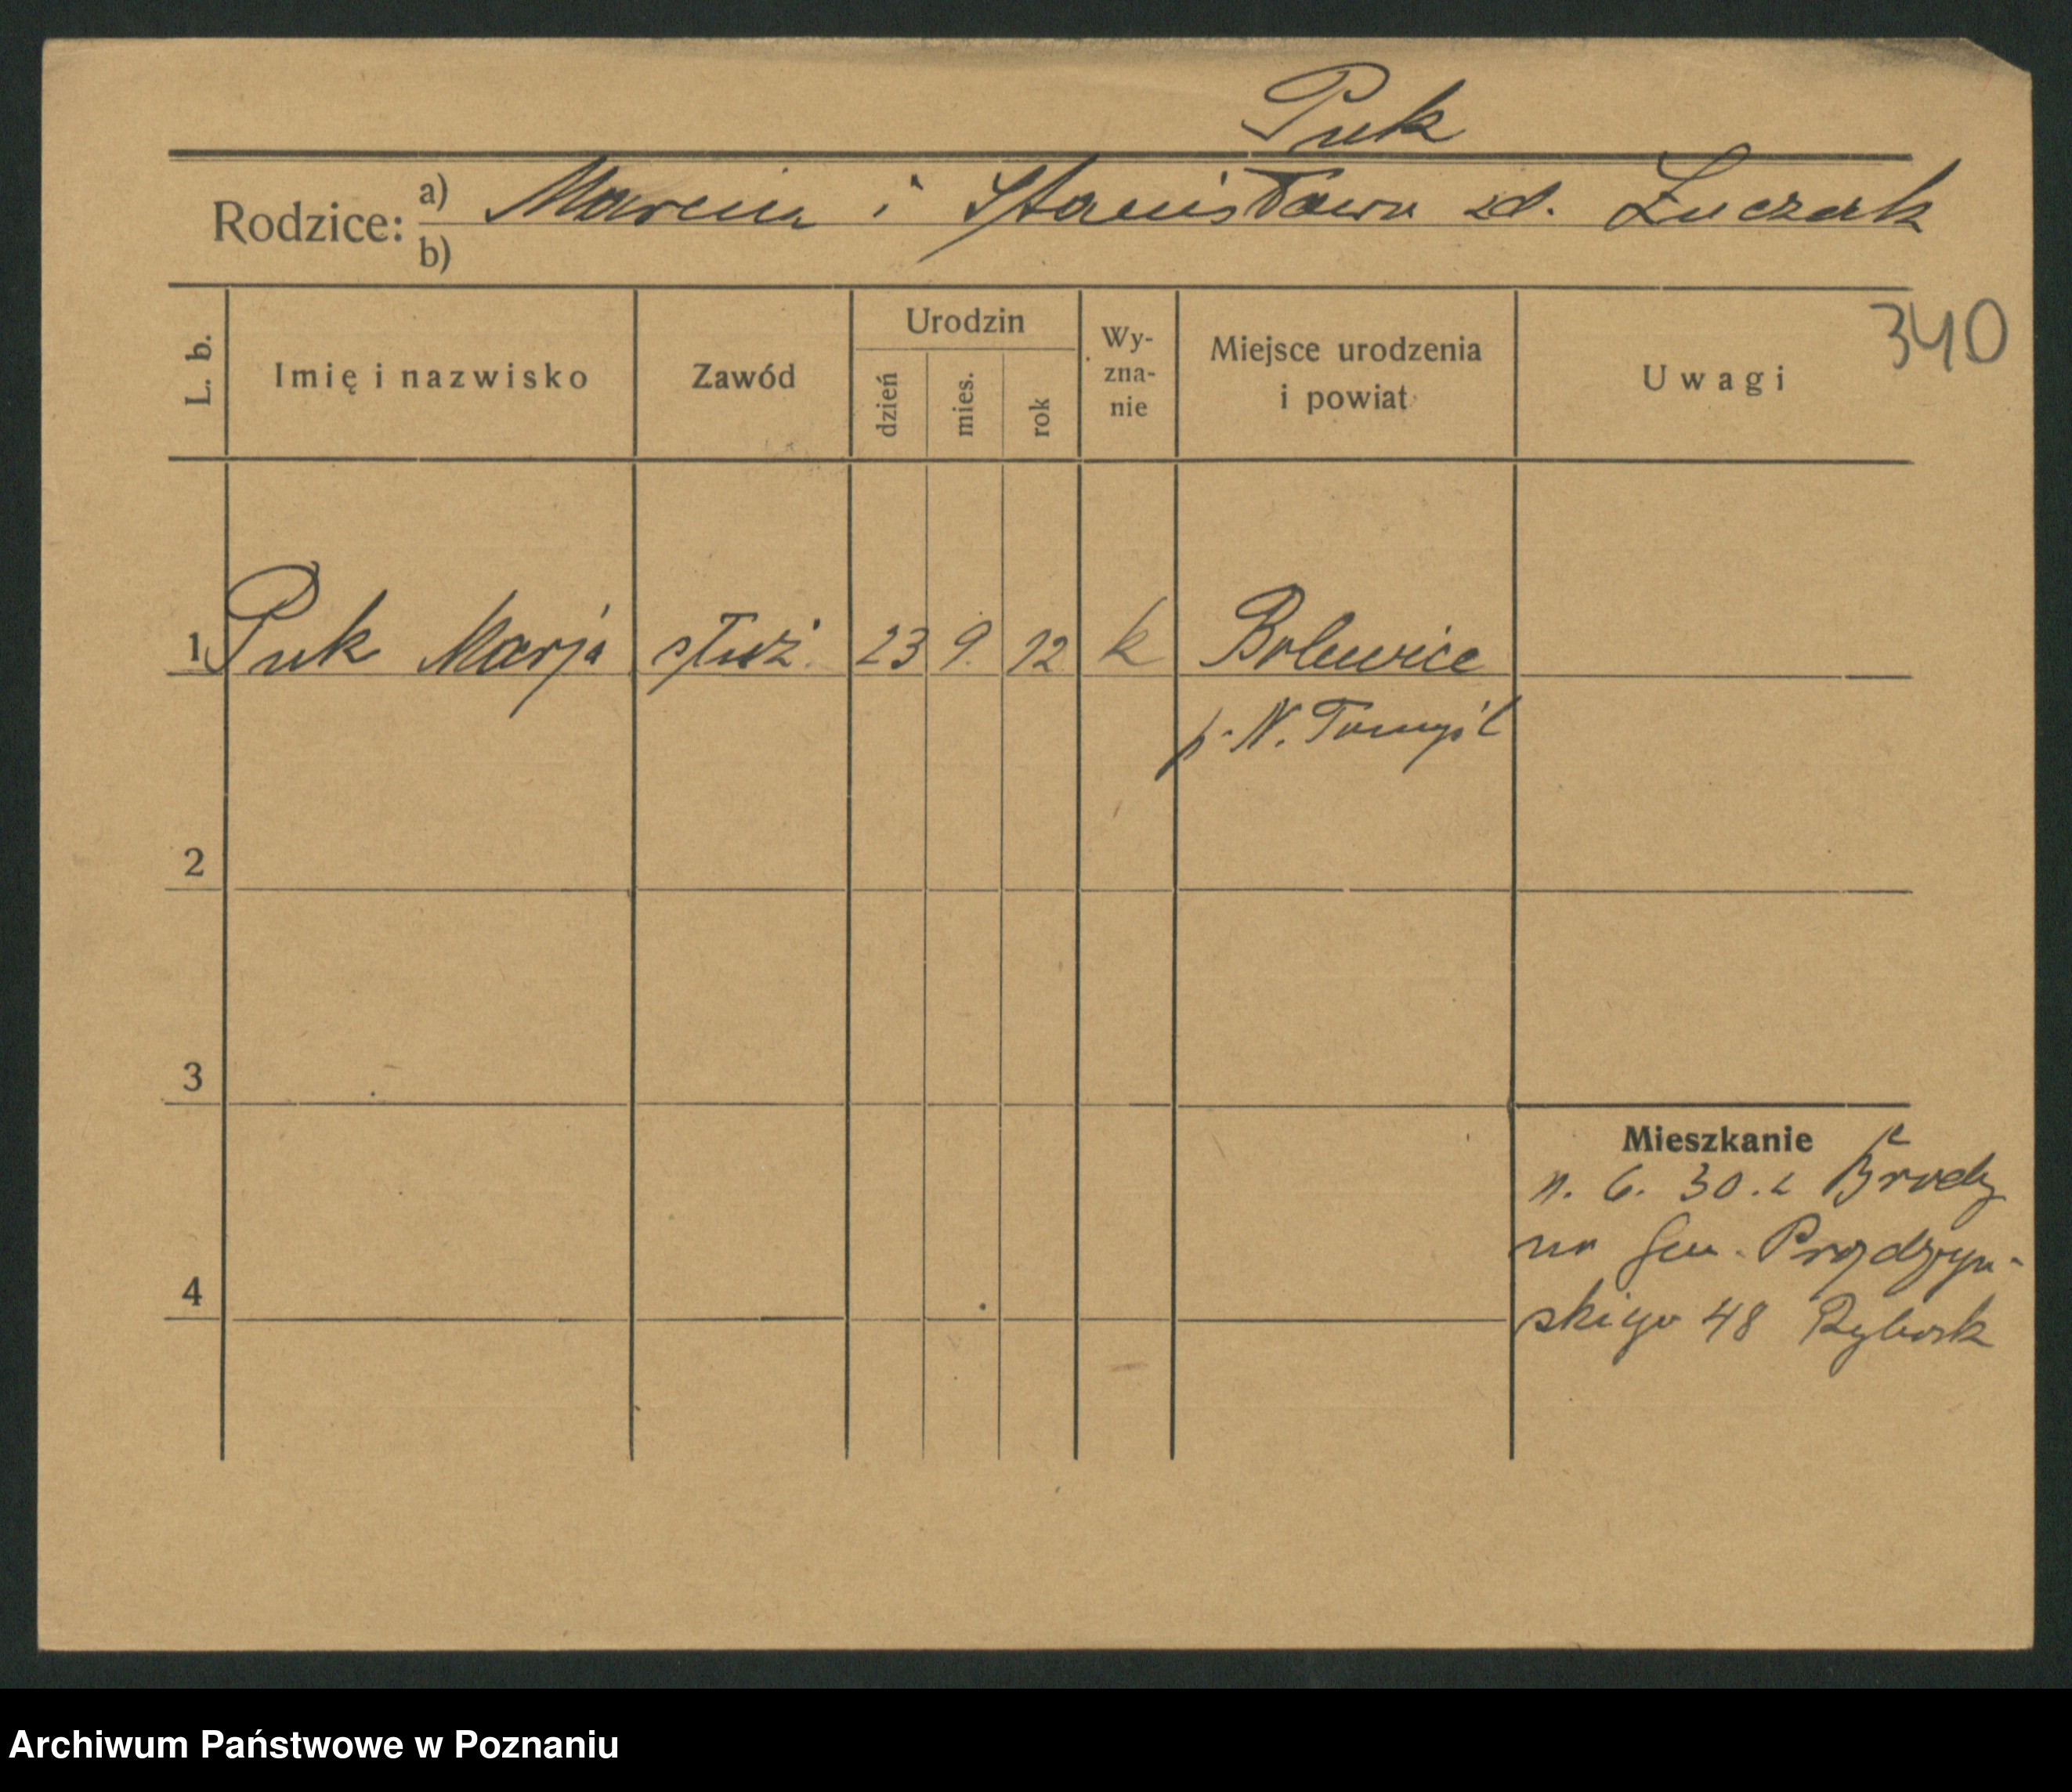 Puk
Rodzice: a) Marcin i Stanisława zd. Łuczak
b)
L. b. Imię i nazwisko Zawód Urodzin dzień mies. rok Wy-zna-nie Miejsce urodzenia i powiat Uwagi 340
1 Puk Marja służ. 23 9. 12 k Bolewice
p. N. Tomyśl
2
3
Mieszkanie
6. 30. z Brody
na Gen. Prądzyń-
4
skiego 48 Rybark
Archiwum Państwowe w Poznaniu